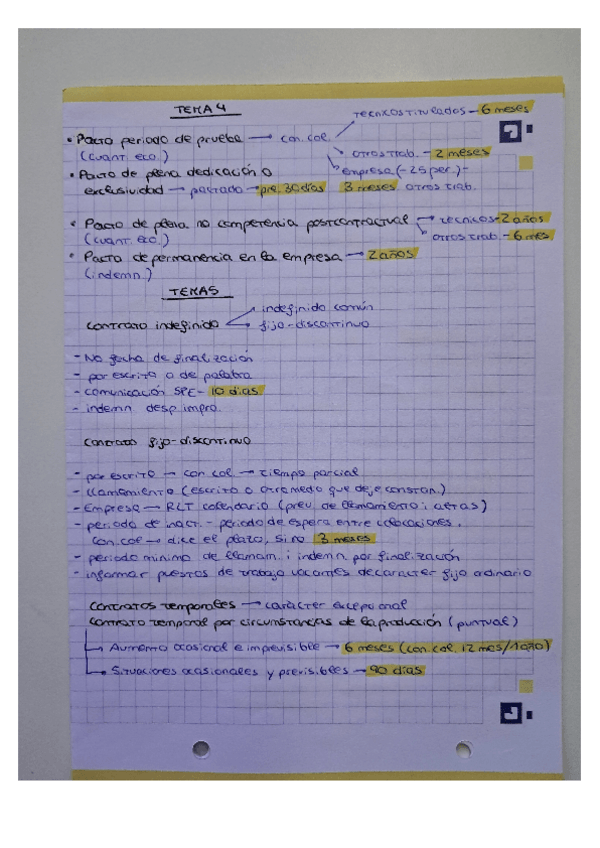 TEMA 4
• Pacto periodo de prueba → con. col. → Técnicos titulados - 6 meses
(cuant. eco.) → otros trab. - 2 meses
• Pacto de plena dedicación o → empresa (-25 per.) -
exclusividad → pactado → pre. 30 días 3 meses otros trab.
• Pacto de plena no competencia postcontractual → técnicos - 2 años
(cuant. eco.) → otros trab. - 6 mes.
• Pacto de permanencia en la empresa → 2 años
(indemn.)
TEMA 5
contrato indefinido → indefinido común
→ fijo-discontinuo
- No fecha de finalización
- por escrito o de palabra
- comunicación SPE - 10 días
- indemn desp impro.
Contrato fijo-discontinuo
- por escrito → con col → tiempo parcial
- llamamiento (escrito o otro medio que deje constan.)
- Empresa → RLT calendario (prev. de llamamiento i altas)
- periodo de inact. - periodo de espera entre colocaciones.
con. col → dice el plazo, si no 3 meses
- periodo mínimo de llamam. i indemn por finalización
- informar puestos de trabajo vacantes de carácter fijo ordinario
Contratos temporales → carácter excepcional
Contrato temporal por circunstancias de la producción (puntual)
→ Aumento ocasional e imprevisible → 6 meses (con. col. 12 mes/1 año)
→ Situaciones ocasionales y previsibles → 90 días